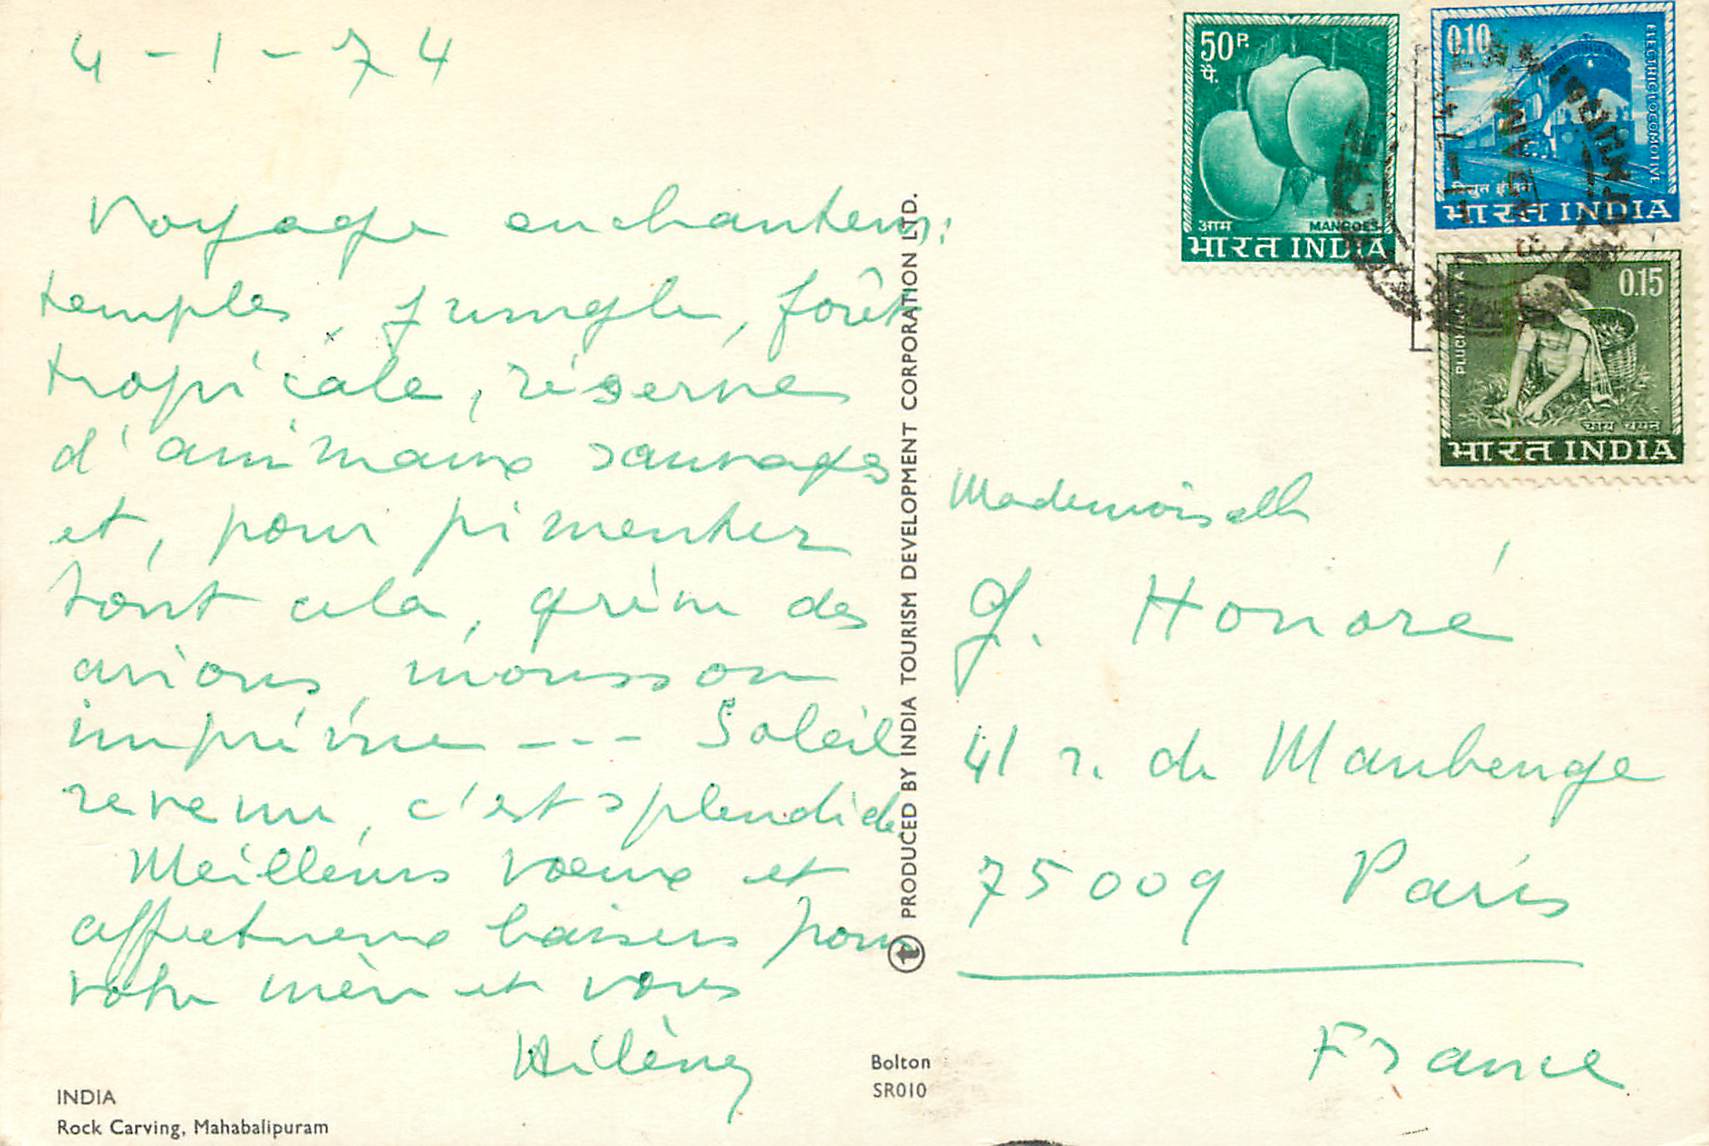 4-1-74
Voyage enchanteur :
temples, jungle, forêt
tropicale, réserve
d'animaux sauvages
et, pour pimenter
tout cela, grève des
avions, mousson
imprévue --- Soleil
revenu, c'est splendide
Meilleurs vœux et
affectueux baisers pour
votre mère et vous
Hélène
INDIA
Rock Carving, Mahabalipuram
PRODUCED BY INDIA TOURISM DEVELOPMENT CORPORATION LTD.
Bolton
SR010
50 P.
पै.
आम MANGOES
भारत INDIA
0.10
ELECTRIC LOCOMOTIVE
विद्युत इंजन
भारत INDIA
0.15
PLUCKING TEA
चाय चयन
भारत INDIA
Mademoiselle
J. Honoré
41 r. de Maubeuge
75009 Paris
France